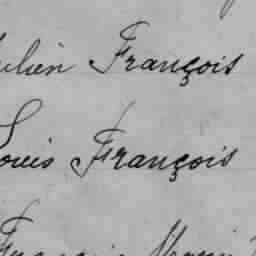 Julien François
Louis François